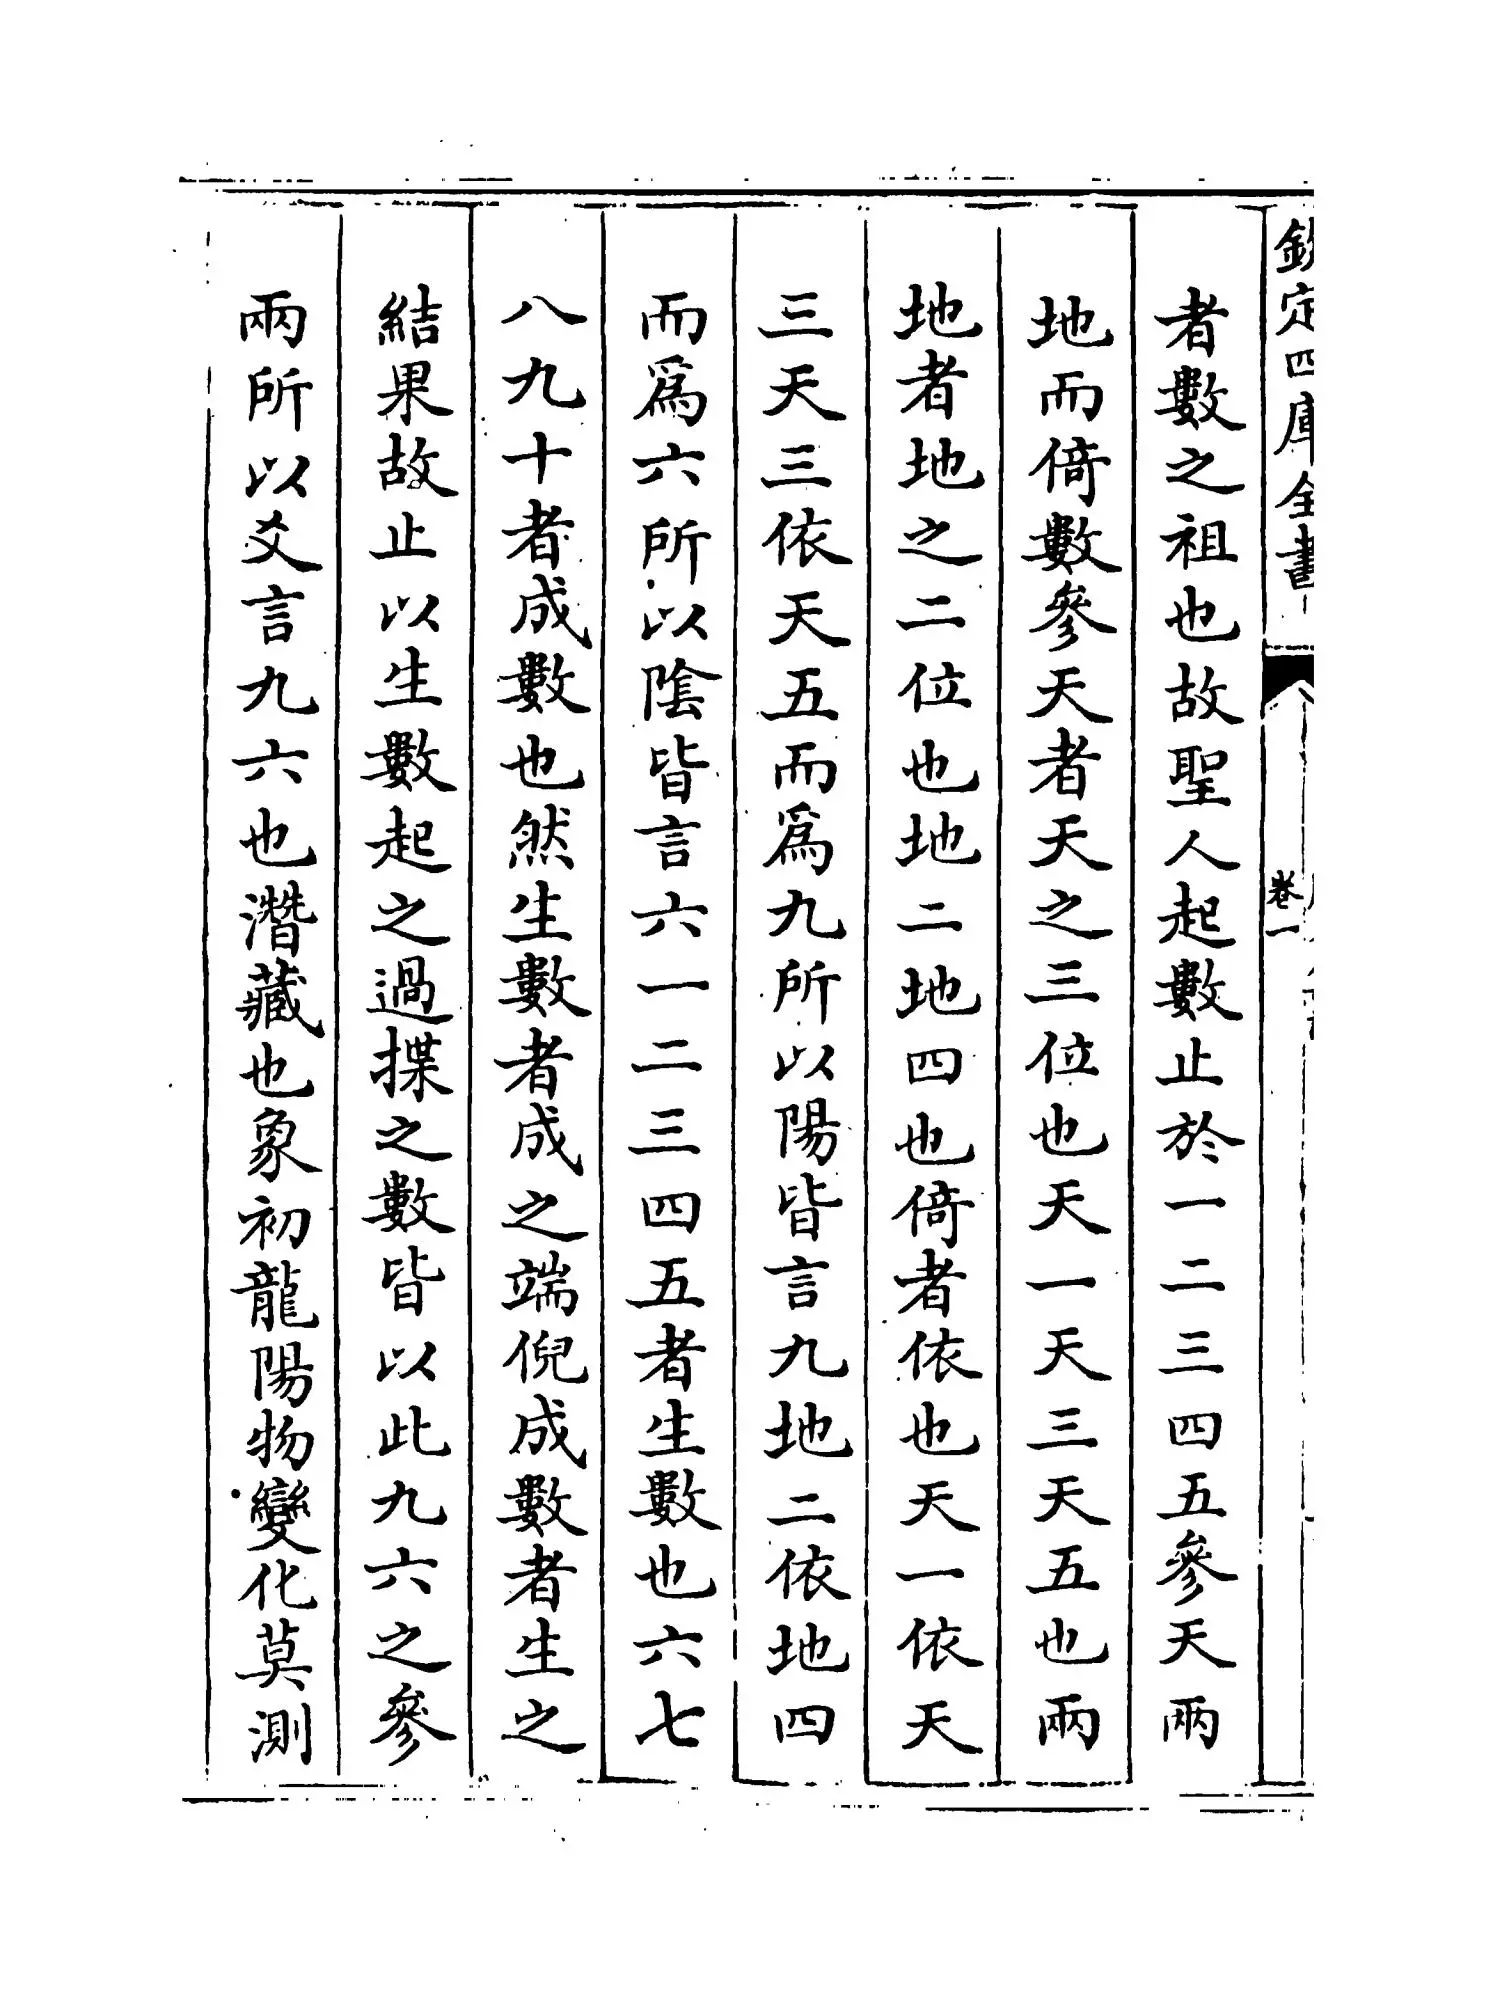 欽定四庫全書
卷一
者數之祖也故聖人起數止於一二三四五參天兩
地而倚數參天者天之三位也天一天三天五也兩
地者地之二位也地二地四也倚者依也天一依天
三天三依天五而為九所以陽皆言九地二依地四
而為六所以陰皆言六一二三四五者生數也六七
八九十者成數也然生數者成之端倪成數者生之
結果故止以生數起之過揲之數皆以此九六之參
兩所以爻言九六也潛藏也象初龍陽物變化莫測